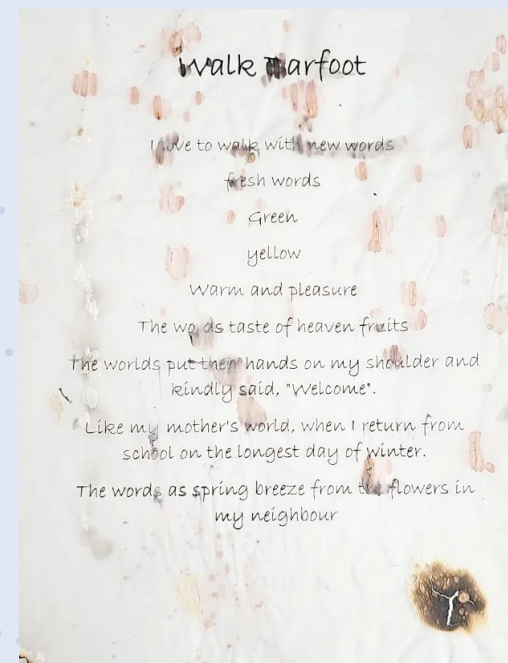 Walk Barfoot
I love to walk with new words
fresh words
Green
yellow
Warm and pleasure
The words taste of heaven fruits
The worlds put their hands on my shoulder and
kindly said, "Welcome".
Like my mother's world, when I return from
school on the longest day of winter.
The words as spring breeze from the flowers in
my neighbour